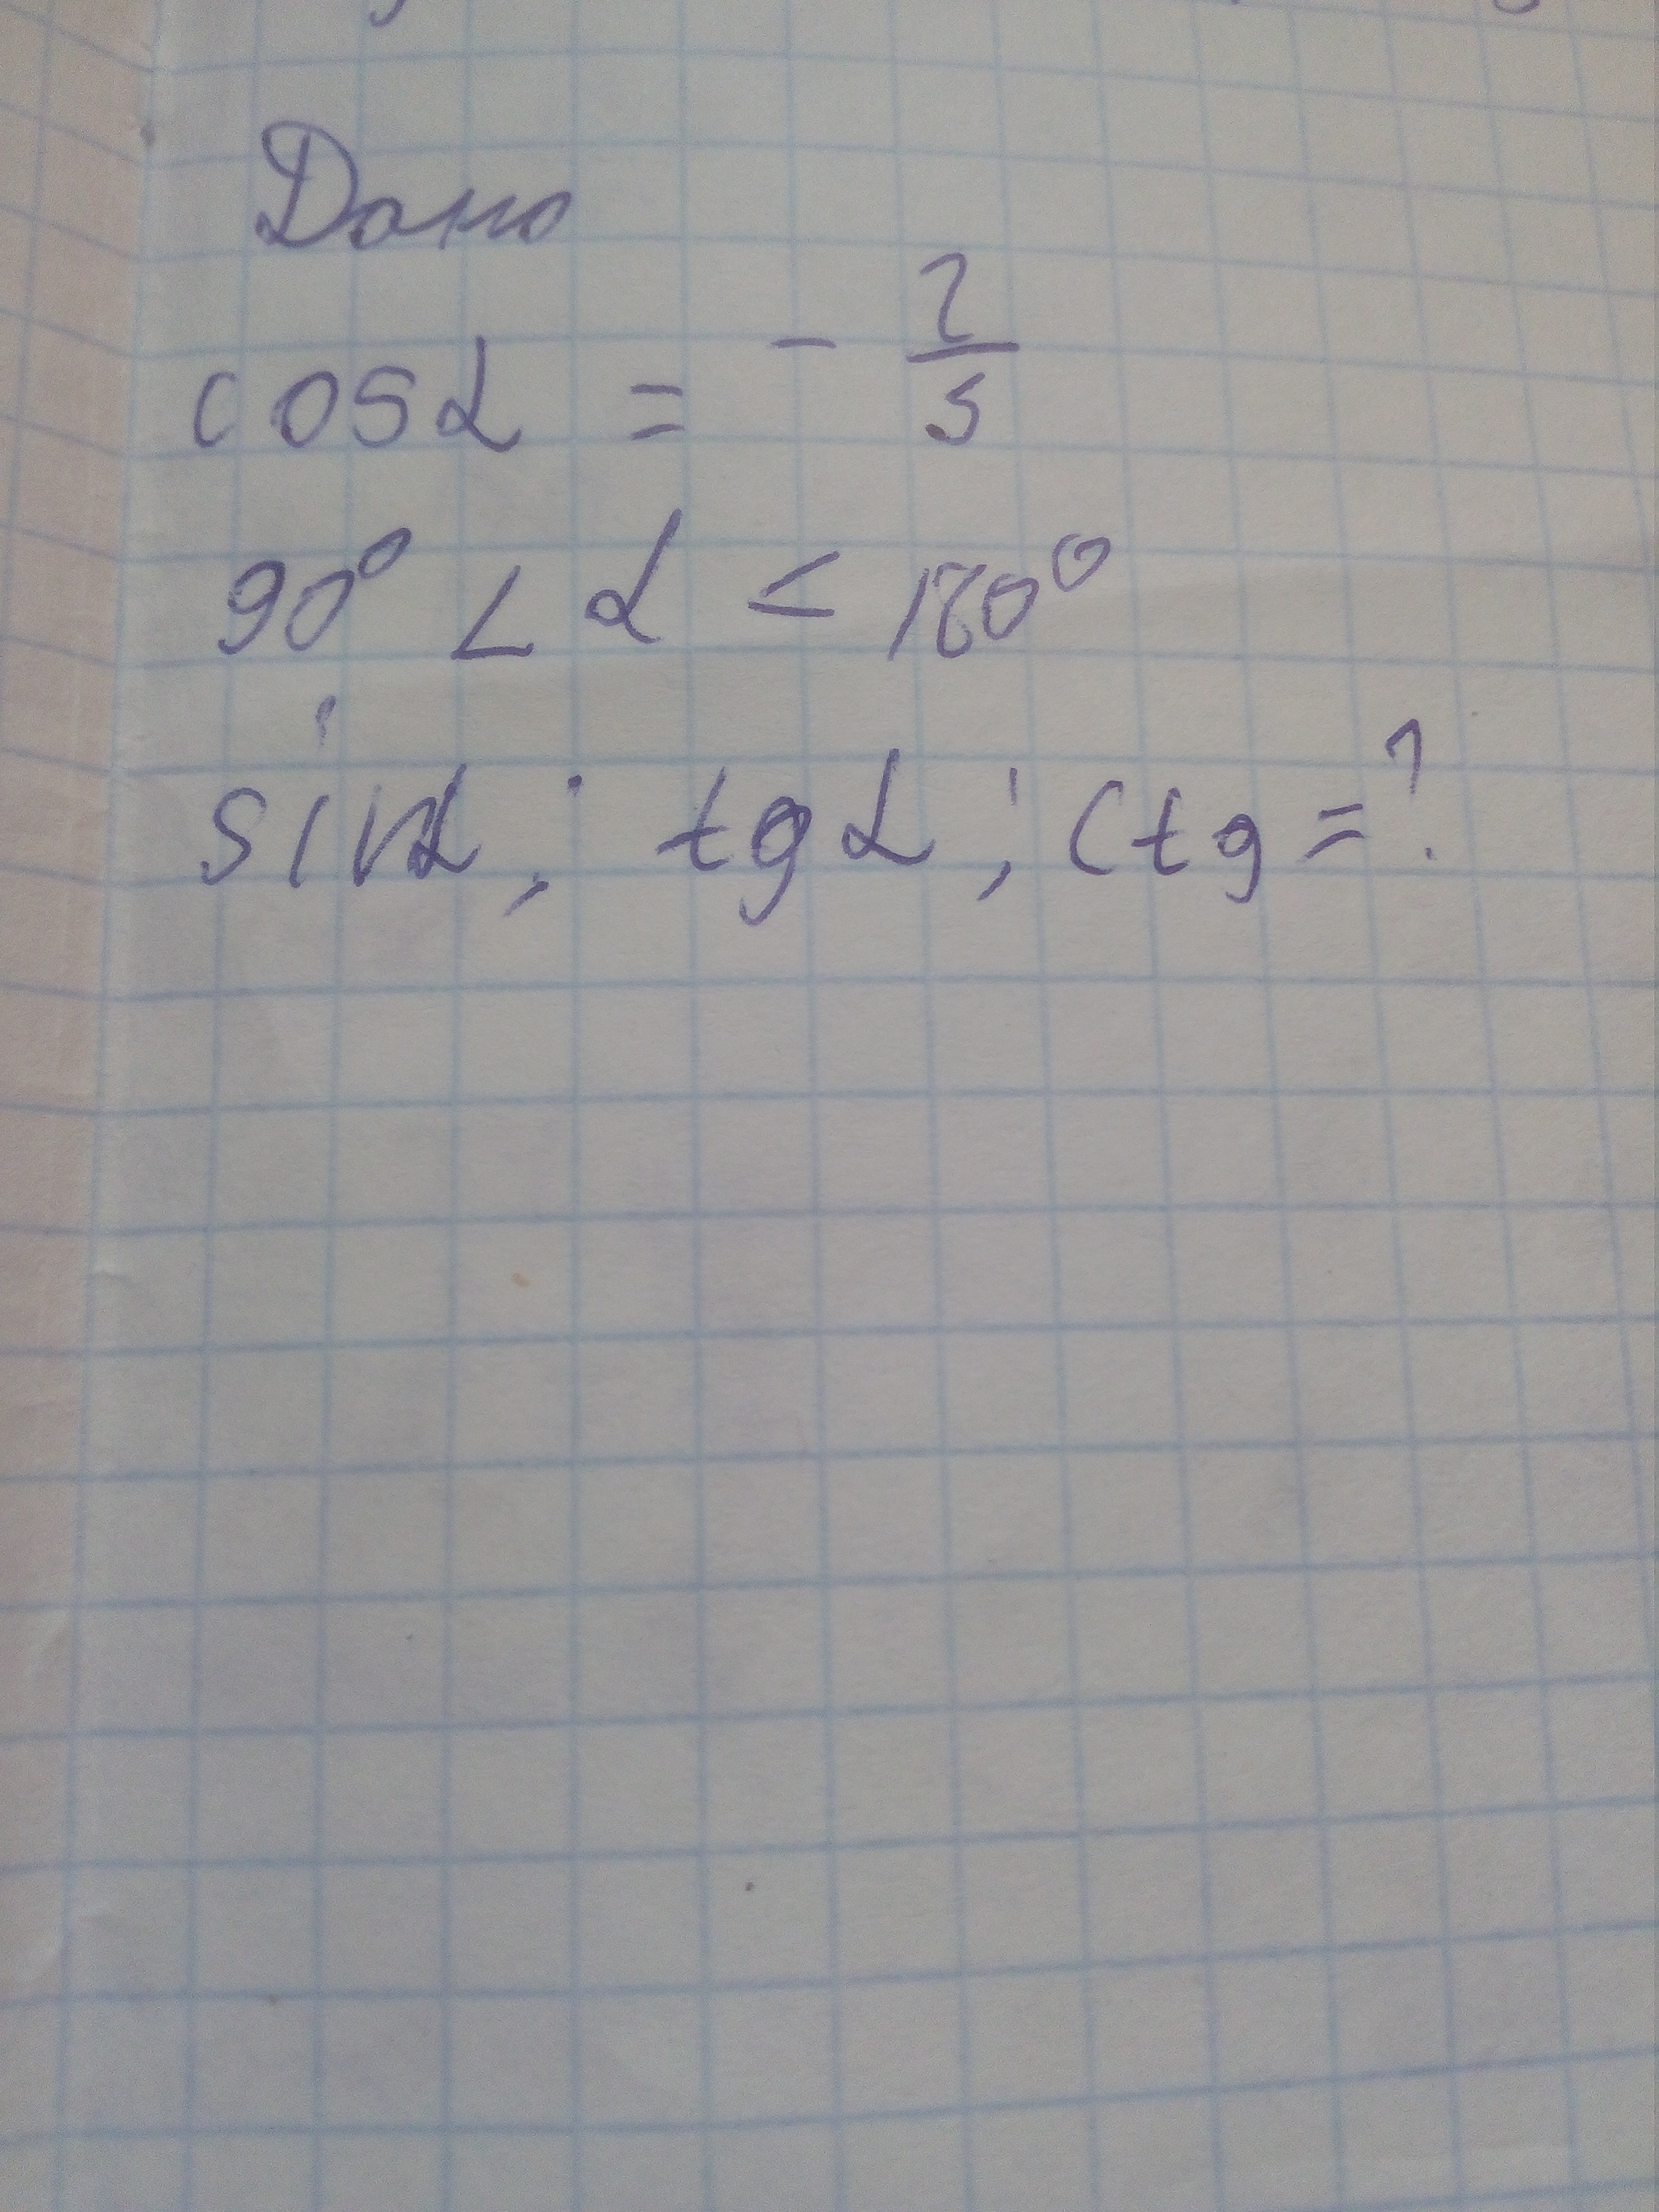 Дано
cosα = - 2/5
90° < α < 180°
sinα; tgα; ctg = ?